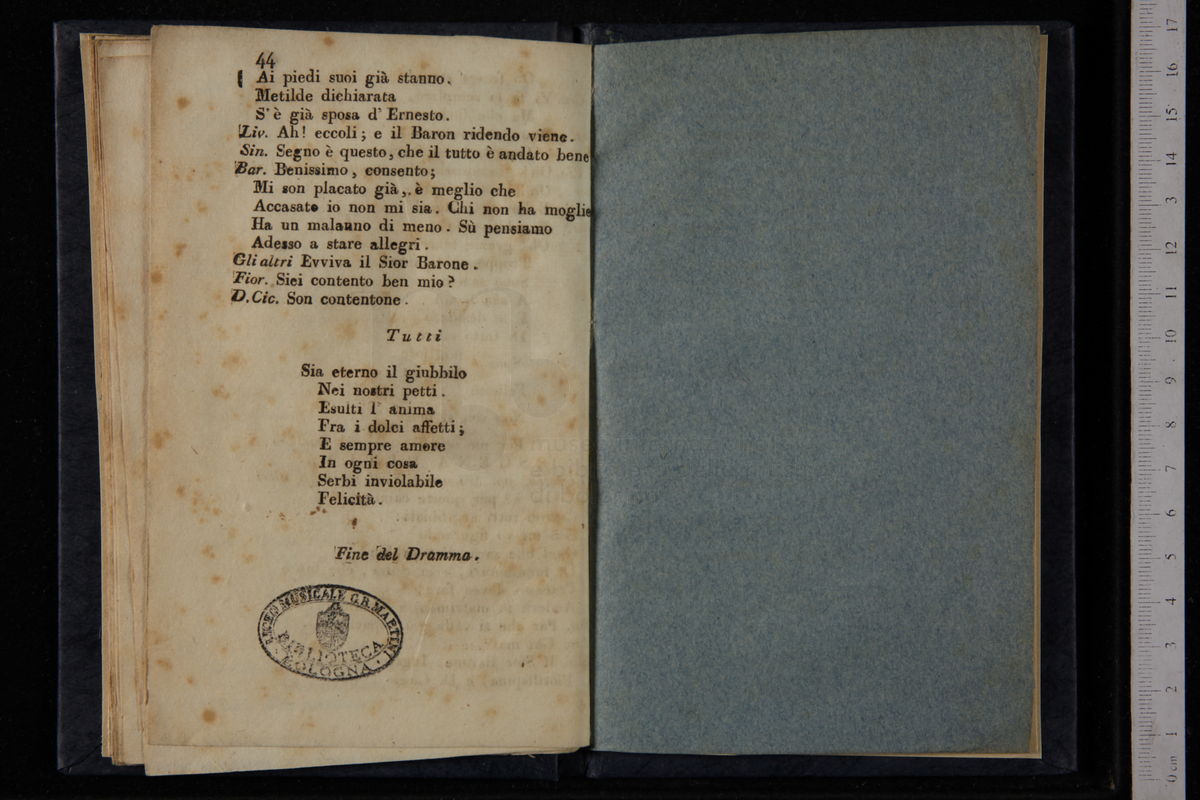 44
Ai piedi suoi già stanno.
Metilde dichiarata
S'è già sposa d'Ernesto.
Liv. Ah! eccoli; e il Baron ridendo viene.
Sin. Segno è questo, che il tutto è andato bene
Bar. Benissimo, consento;
Mi son placato già, è meglio che
Accasato io non mi sia. Chi non ha moglie
Ha un malanno di meno. Sù pensiamo
Adesso a stare allegri.
Gli altri Evviva il Sior Barone.
Fior. Siei contento ben mio?
D. Cic. Son contentone.
Tutti
Sia eterno il giubbilo
Nei nostri petti.
Esulti l'anima
Fra i dolci affetti;
E sempre amore
In ogni cosa
Serbi inviolabile
Felicità.
Fine del Dramma.
LICEO MUSICALE G.B. MARTINI
BIBLIOTECA
BOLOGNA
0 cm 1 2 3 4 5 6 7 8 9 10 11 12 3 14 15 16 17